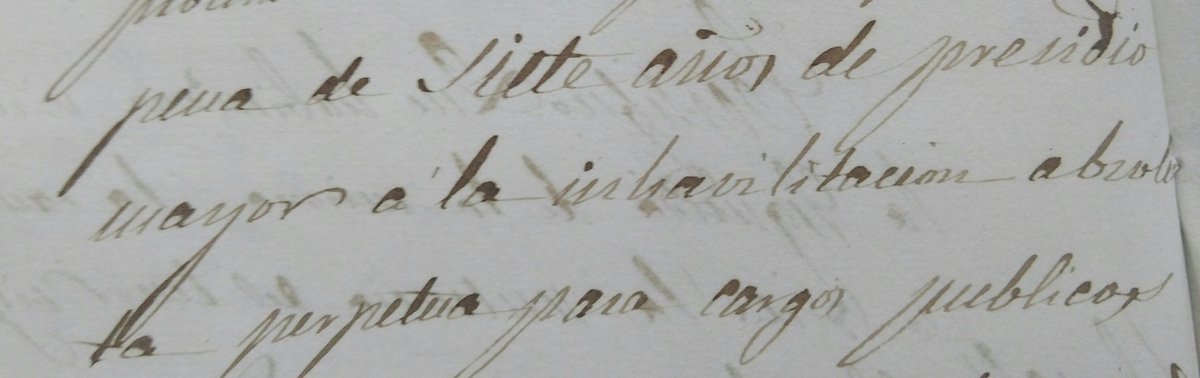 pena de Siete años de presidio
mayor á la inhavilitacion absolu
ta perpetua para cargos publicos